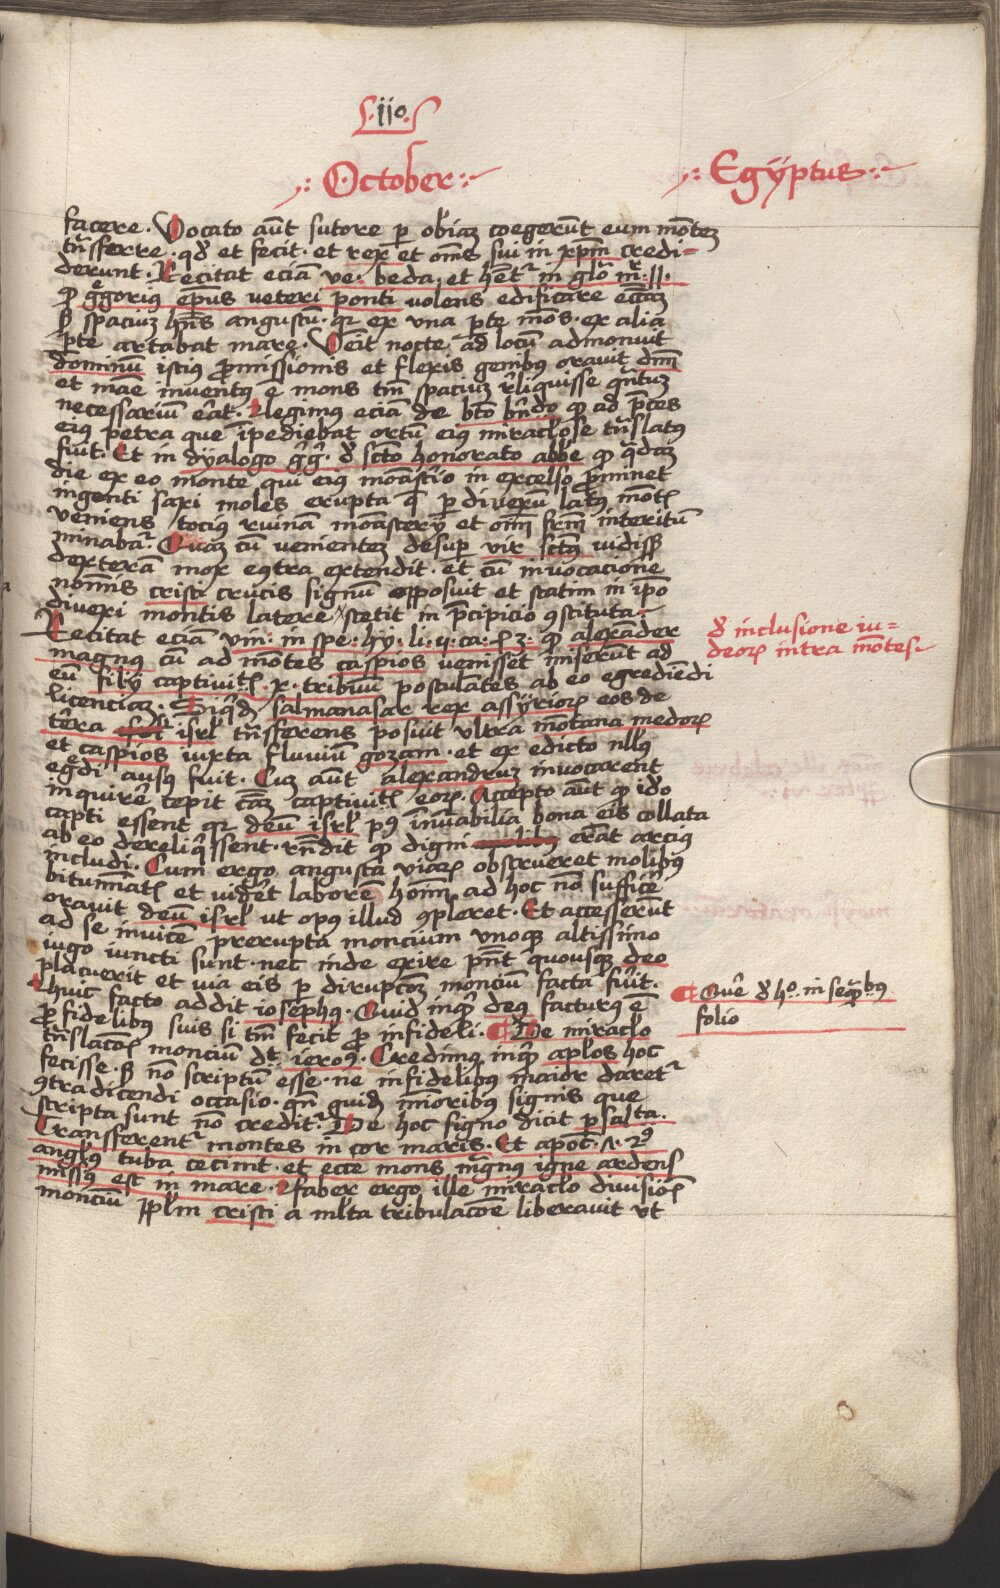 .iio.
October
Egÿptus
facere. Vocato aūt sutore ꝑ obiaꝫ coegerūt eum mōteꝫ
tn̄sferre. qđ et fecit. et rex et om̄s sui in xp̄m credi=
derunt. Recitat eciā ve. beda. et hēt᷑ in
gͤgorius ep̄us veteri ponti volens edificare eccl̄iaꝫ
spaciuꝫ hn̄s angustū. qꝛ ex vna ꝑte mōs. ex alia
ꝑte artabat mare. Veīt nocte ad locū admonuit
dominū istius ꝓmissionis et flexis genibus orauit dn̄m
et māe inventꝯ ē mons tm̄ spaciuꝫ reliquisse qn̄tuꝫ
necessariū eāt. Legimꝯ eciā de bt̄o ꝙ ad p̄ces
eiꝯ petra que īpediebat ortū eiꝯ miracl̄ose tn̄slatꝯ
fuit. Et in dÿalogo gḡ. đ sct̄o honorato abb̄e ꝙ qͣdaꝫ
die ex eo monte qui eiꝯ moāst̄io in excelso ꝓminet
ingenti saxi moles erupta q̄ ꝑ diuexū latꝯ mot̄
veniens tociꝯ ruinā moāsterÿ et om̄ frm̄ interitū
minabat᷑. Quaꝫ cū venienteꝫ desuꝑ vir sct̄ꝯ vidiss
dexterā mox ꝯtra extendit. et cū invocacione
nom̄is cristi crucis signū opposuit et statim in ip̄o
diuexi montis latere stetit in p̄cipicio ꝯstituta.
Recitat eciā vin: in spe. hÿ. li. ca. ꝙ alexāder
magnꝯ cū ad mōtes caspios venisset miserūt ad
eū filÿ captivit̄. x. tribuū postulātes ab eo egrediēdi
licenciaꝫ. Siqͥdꝫ salmanasar rex assÿrioꝝ eos de
tēra isrl̄ tn̄sferens posuit vltra mōtana medoꝝ
et caspios iuxta fluuiū gozam. et ex edicto nll̄ꝯ
eg̊di ausꝯ fuit. Cuꝫ aūt alexandruꝫ invocarent
inquirē cepit cāꝫ captivit̄ eoꝝ. Accepto aūt ꝙ iđo
capti essent qꝛ deū isrl̄ pꝰ inūabilia bona eis collata
ab eo dereliqͥssent. rn̄dit ꝙ digni erāt arciꝯ
includi. Cum ergo angusta viaꝝ obstrueret molibꝯ
bitumīat̄ et vidēt laborē hōm ad hoc nō sufficē
orauit deū isrl̄ ut opꝯ illud ꝯpleret. Et accesserūt
ad se invicē prerupta moncium vnoqꝫ altissimo
iugo iuncti sunt. nec inde exire pn̄t quousqꝫ deo
placuerit et via eis ꝑ dirupcōꝫ monciū facta fūit.
Huic facto addit iosephꝯ. Quid inqͥ deꝯ facturꝯ ē
ꝓ fidelibꝯ suis si tm̄ fecit ꝓ infideli. De miracl̄o
tn̄slacōꝫ monciū dt̄ ieroꝰ. Credimꝯ inqͥ apl̄os hoc
fecisse. nō scriptū esse. ne infidelibꝯ maior daret᷑
ꝯtradicendi occasio. qn̄ quidꝫ mīoribꝯ signis que
scripta sunt nō credit᷑. De hoc signo dicit psalta.
Transferent᷑ montes in cor maris. Et apoc̄.
angl̄ꝯ tuba cecinit. et ecce mons mͣgnꝯ igne ardens
missꝯ est in mare. faber ergo ille miracl̄o division̄
monciū ppl̄m cristi a ml̄ta tribulacōe liberauit vt
đ inclusione iu=
deoꝝ intra mōtes.
Quē đ hͦ. in seqͣbꝯ
folio